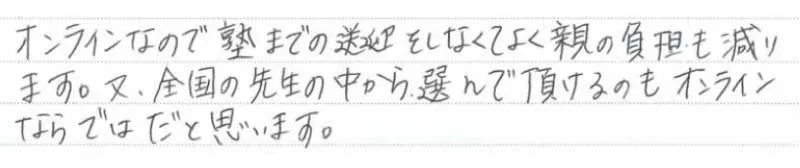 オンラインなので塾までの送迎をしなくてよく親の負担も減り
ます。又、全国の先生の中から選んで頂けるのもオンライン
ならではだと思います。